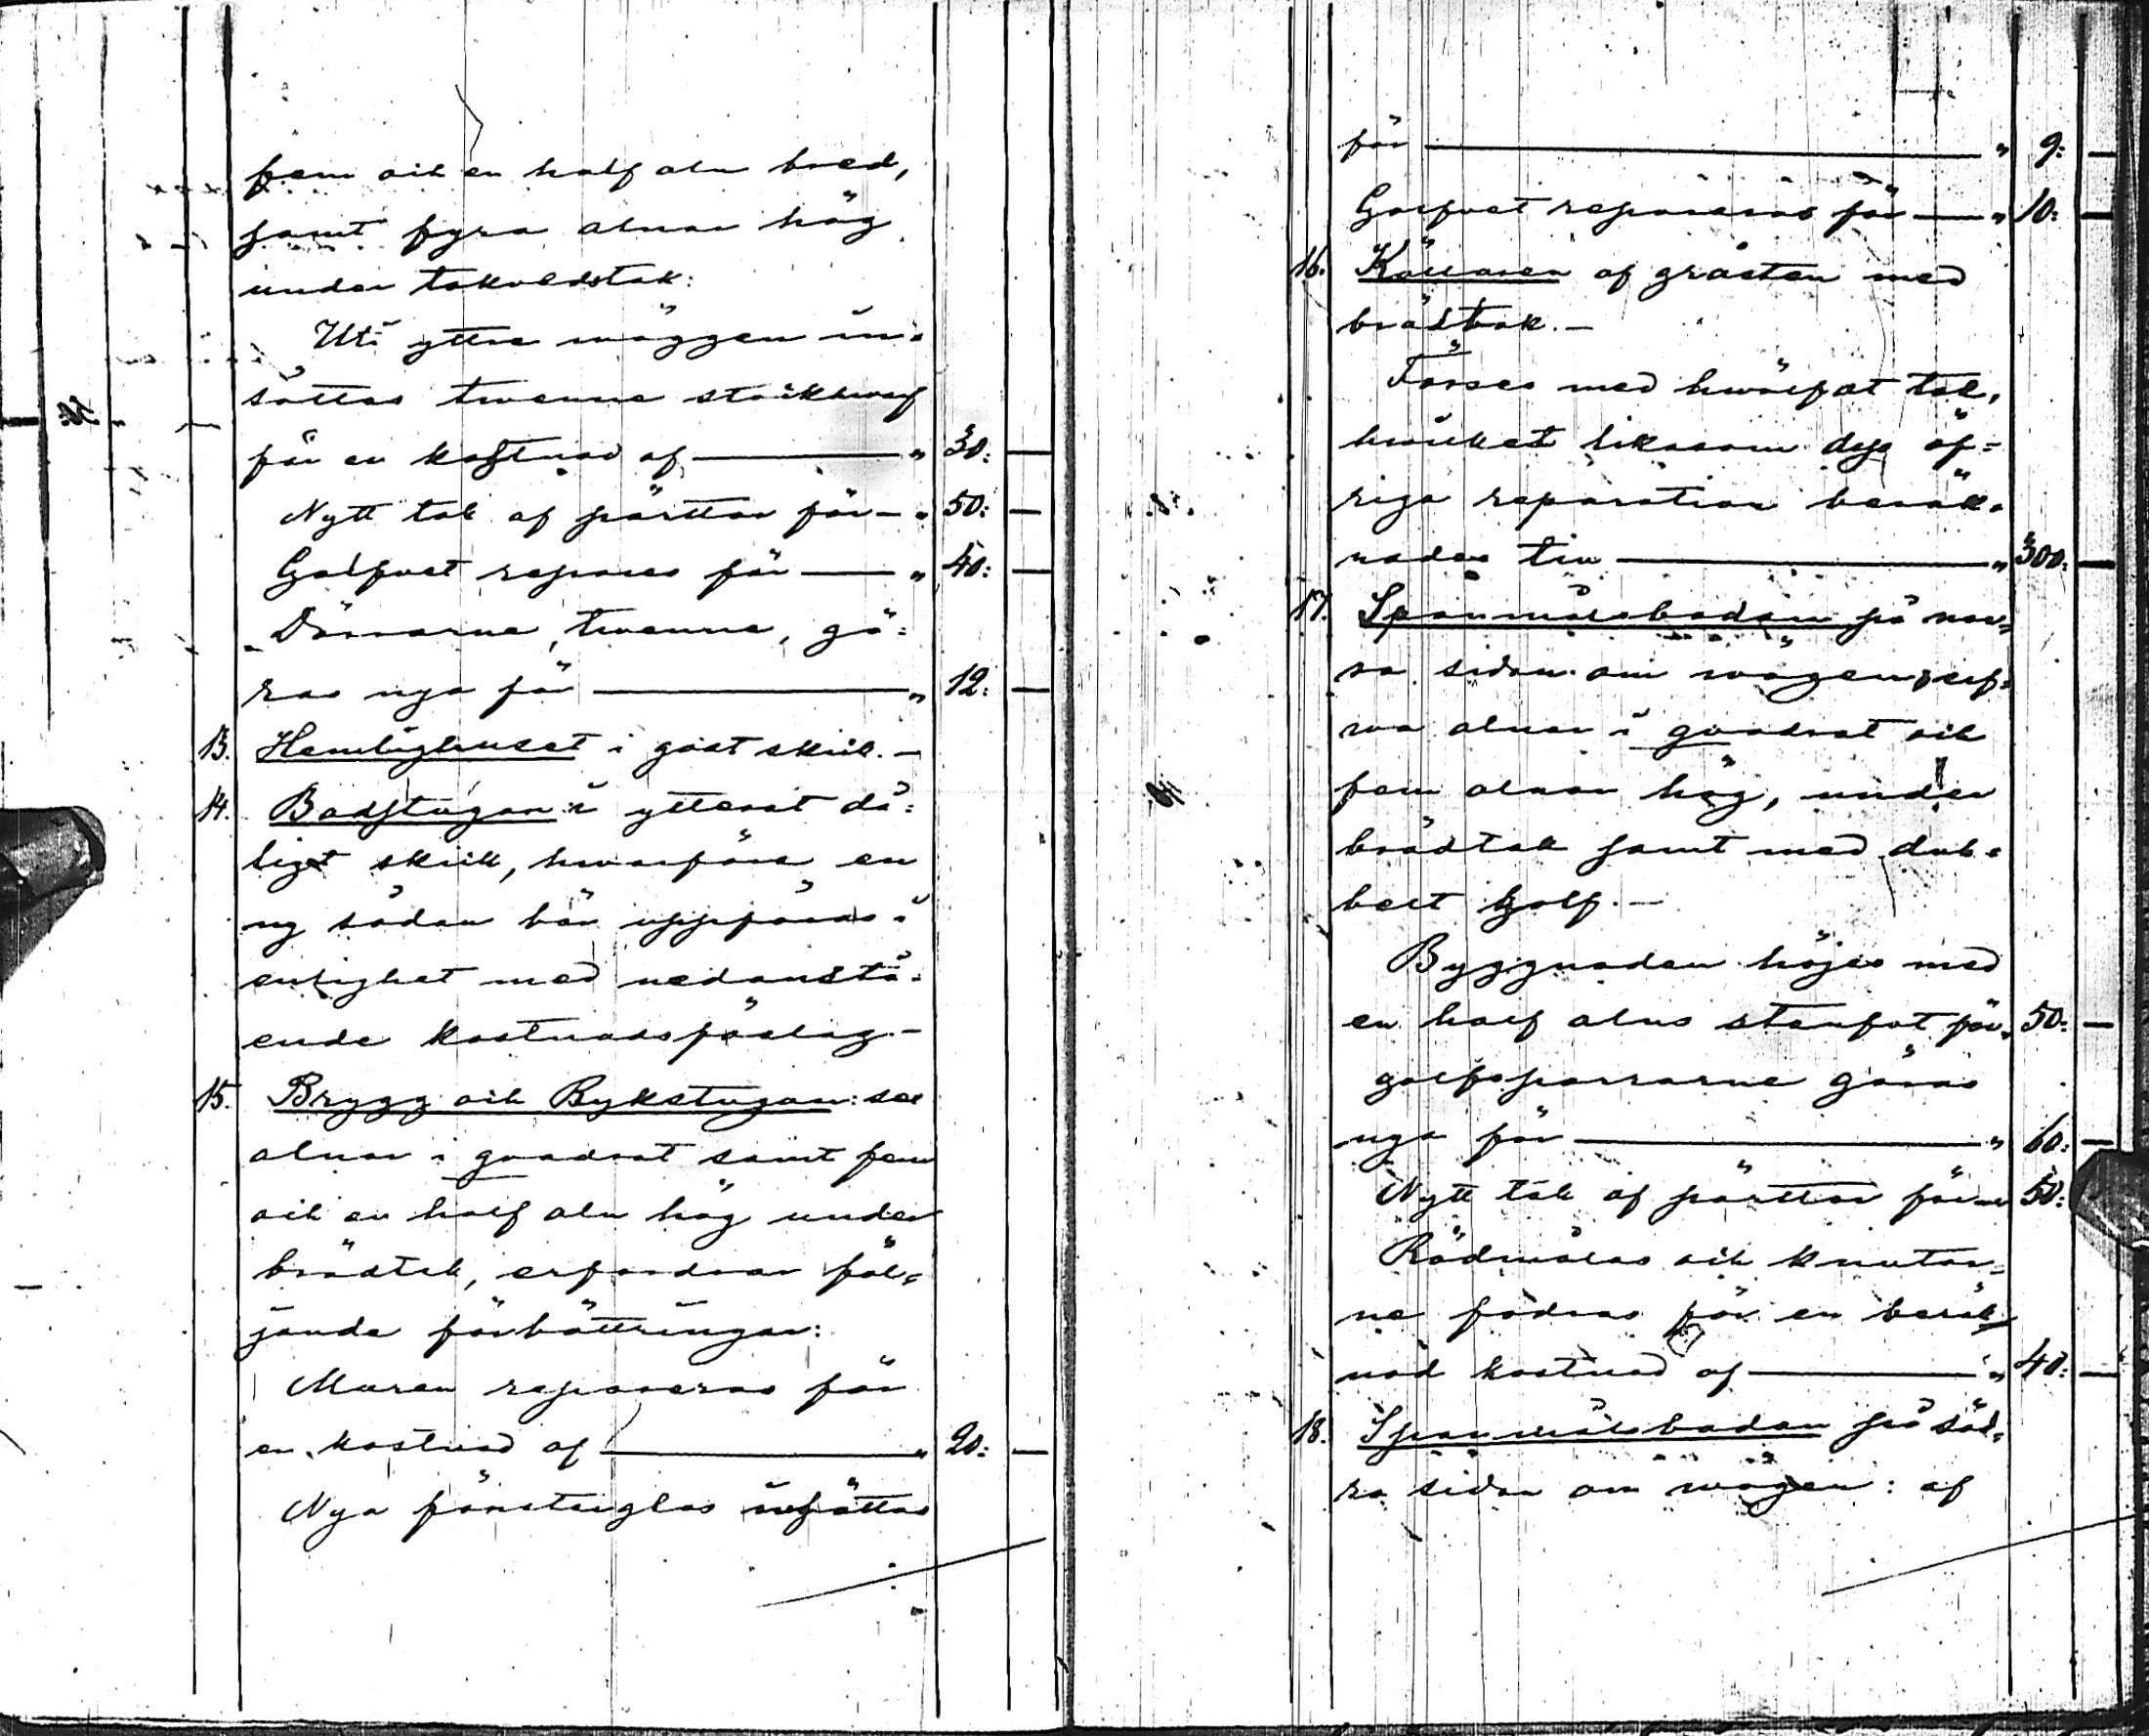 fem och en half aln bred,
samt fyra alnar hög
under takvedstak:
Uti yttre wäggen in-
sättas twenne stockhwarf
för en kostnad af — " 30: —
Nytt tak af pärttor för — " 50: —
Golfvet repareras för — " 40: —
Dörrarne, twenne, gö=
ras nya för — " 12: —
13. Hemlighuset i godt skick. —
14. Badstugan i ytterst då=
ligt skick, hwarföre en
ny sådan bör uppföras i
enlighet med nedanstå-
ende kostnadsförslag. —
15. Brygg och Bykstugan: sex
alnar i quadrat samt fem
och en half aln hög under
brädtak, erfordrar föl-
jande förbättringar:
Muren repareras för
en kostnad af — " 20: —
Nya fönsterglas insättas
för — " 9: —
Golfvet repareras för — " 10: —
16. Källaren af gråsten med
brädtak. —
Förses med hwälfdt tak,
hwilket liksom dess öf=
riga reparation beräk-
nades till — " 300: —
17. Spanmålsboden på nor-
ra sidan om wägen, elf-
wa alnar i quadrat och
fem alnar hög, under
brädtak samt med dub-
belt golf. —
Byggnaden höjes med
en half alns stenfot för " 50: —
golfsparrarne göras
nya för — " 60: —
Nytt tak af pärttor för — " 50: —
Rödmålas och knutar-
ne fodras för en beräk-
nad kostnad af — " 40: —
18. Spanmålsbodan på söd-
ra sidan om wägen: af